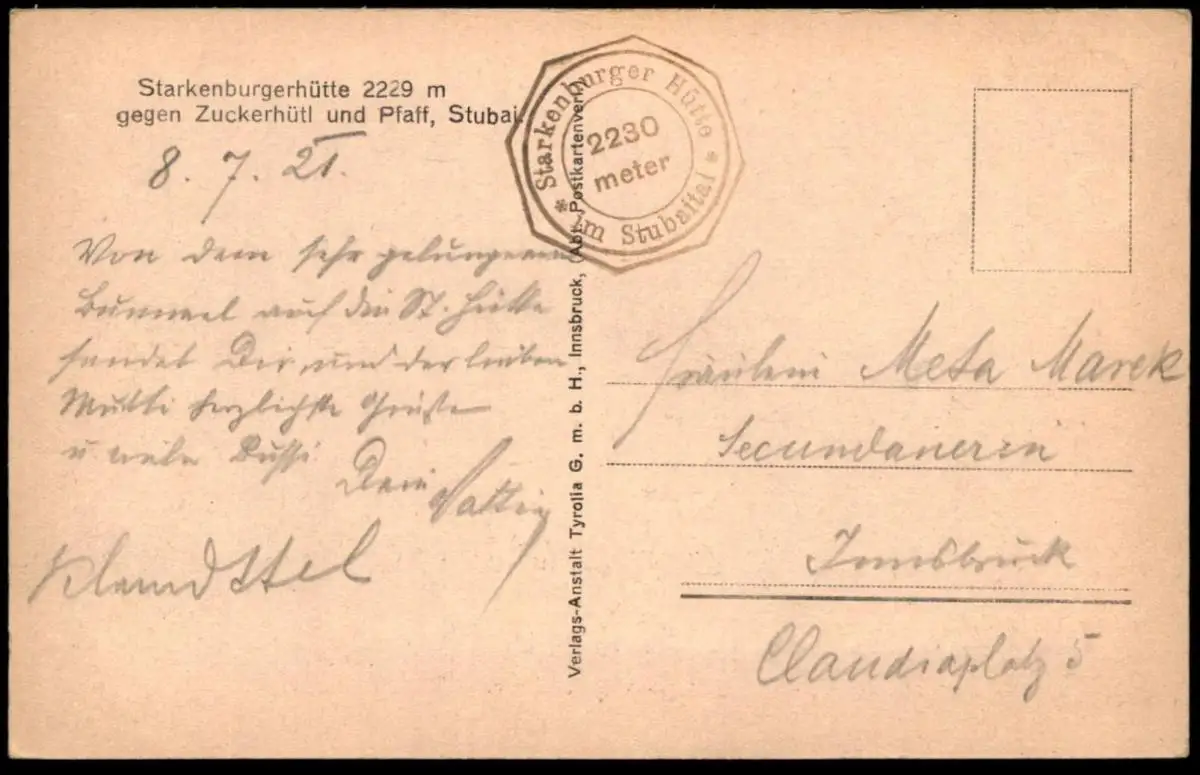 Starkenburgerhütte 2229 m
gegen Zuckerhütl und Pfaff, Stubai.
8. 7. 21.
Von dem sehr gelungenen
Bummel auf die St. Hütte
sendet Dir und der lieben
Mutti herzlichste Grüße
u viele Bussi
Dein
* Starkenburger Hütte *
2230
meter
im Stubaital
Verlags-Anstalt Tyrolia G. m. b. H., Innsbruck, (Abt. Postkartenverl.
Fräulein Meta Marek
Secundanerin
Innsbruck
Claudiaplatz 5